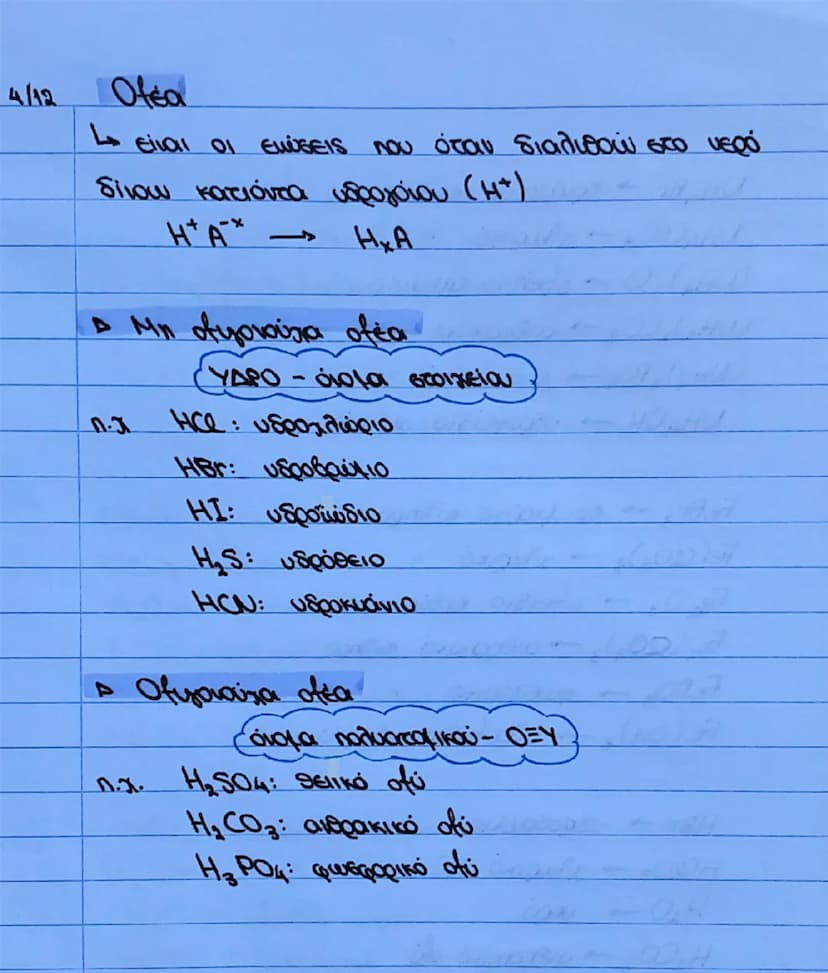 4/12 Οξέα
↳ είναι οι ενώσεις που όταν διαλυθούν στο νερό
δίνουν κατιόντα υδρογόνου (H⁺)
H⁺ A⁻ˣ → HₓA
▷ Μη οξυγονούχα οξέα
ΥΔΡΟ - όνομα στοιχείου
π.χ HCl: υδροχλώριο
HBr: υδροβρώμιο
HI: υδροϊώδιο
H₂S: υδρόθειο
HCN: υδροκυάνιο
▷ Οξυγονούχα οξέα
όνομα πολυατομικού - ΟΞΥ
π.χ. H₂SO₄: θειικό οξύ
H₂CO₃: ανθρακικό οξύ
H₃PO₄: φωσφορικό οξύ